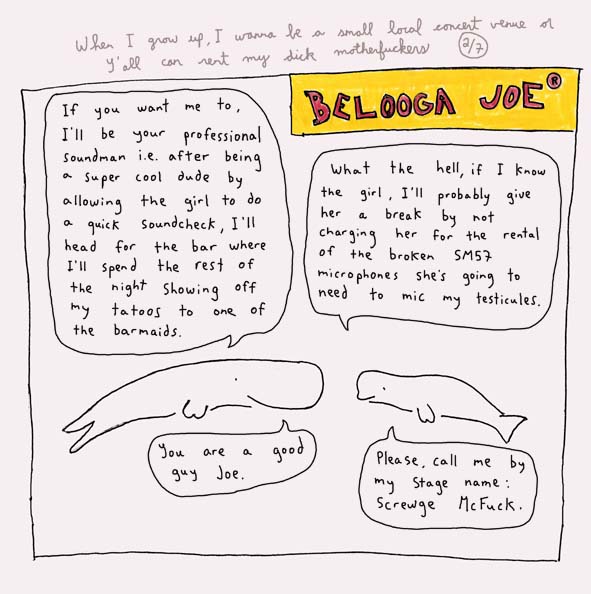 When I grow up, I wanna be a small local concert venue or
y'all can rent my dick motherfuckers 2/7
BELOOGA JOE®
If you want me to,
I'll be your professional
soundman i.e. after being
a super cool dude by
allowing the girl to do
a quick soundcheck, I'll
head for the bar where
I'll spend the rest of
the night showing off
my tatoos to one of
the barmaids.
What the hell, if I know
the girl, I'll probably give
her a break by not
charging her for the rental
of the broken SM57
microphones she's going to
need to mic my testicules.
You are a good
guy Joe.
Please, call me by
my stage name:
Screwge McFuck.